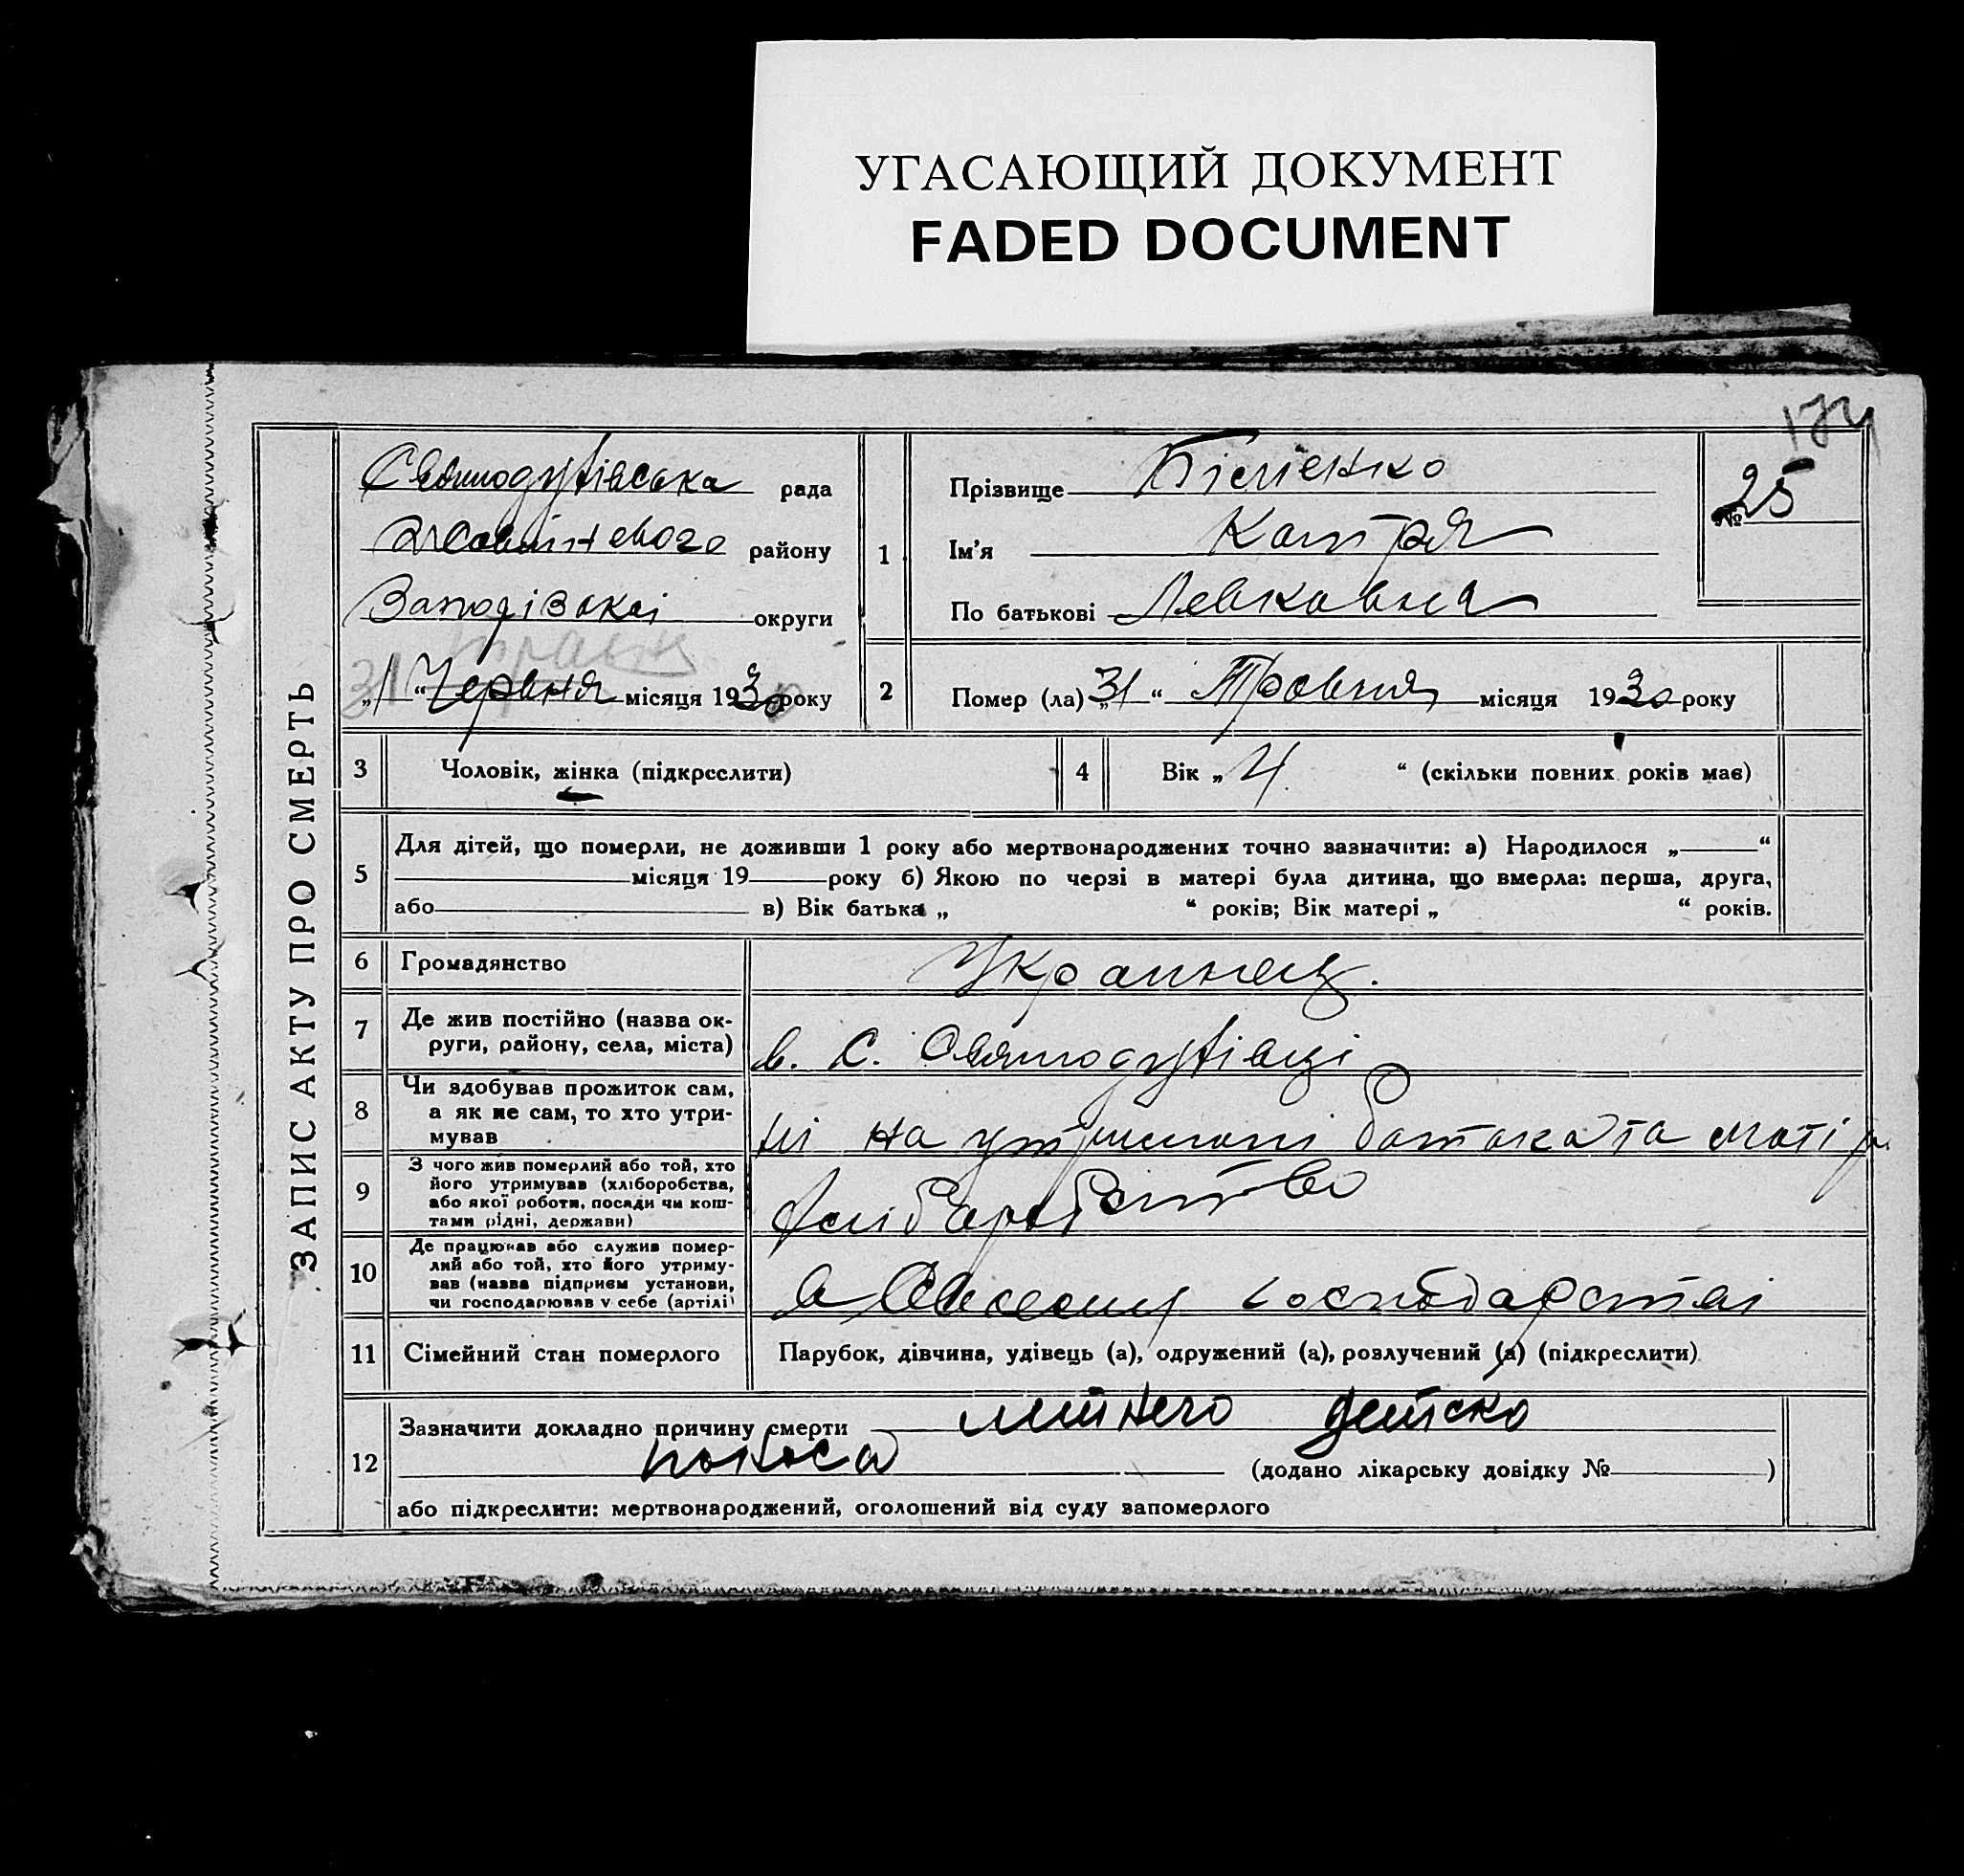 УГАСАЮЩИЙ ДОКУМЕНТ
FADED DOCUMENT
174
ЗАПИС АКТУ ПРО СМЕРТЬ
Святодухівська рада
району
округи
31 травня
„1“ Червня місяця 1930 року
1
Прізвище Біленко
Ім'я Катря
По батькові Левковна
№ 25
2 Помер (ла) „31“ Травня місяця 1930 року
3 Чоловік, жінка (підкреслити)
4 Вік „4“ (скільки повних років має)
5
Для дітей, що померли, не доживши 1 року або мертвонароджених точно зазначити: а) Народилося „ “
місяця 19 року б) Якою по черзі в матері була дитина, що вмерла: перша, друга,
або в) Вік батька „ “ років; Вік матері „ “ років.
6 Громадянство Украинец.
7 Де жив постійно (назва ок-
руги, району, села, міста)
в. С. Святодухівці
8 Чи здобував прожиток сам,
а як не сам, то хто утри-
мував
ні на утриманні батька та матірі
9 З чого жив померлий або той, хто
його утримував (хліборобства,
або якої роботи, посади чи кош-
тами рідні, держави)
Хліборобство
10 Де працював або служив помер-
лий або той, хто його утриму-
вав (назва підприєм установи,
чи господарював у себе (артілі)
в Своєму господарстві
11 Сімейний стан померлого Парубок, дівчина, удівець (а), одружений (а), розлучений (а) (підкреслити)
12 Зазначити докладно причину смерти летнего детско
поноса (додано лікарську довідку № )
або підкреслити: мертвонароджений, оголошений від суду запомерлого